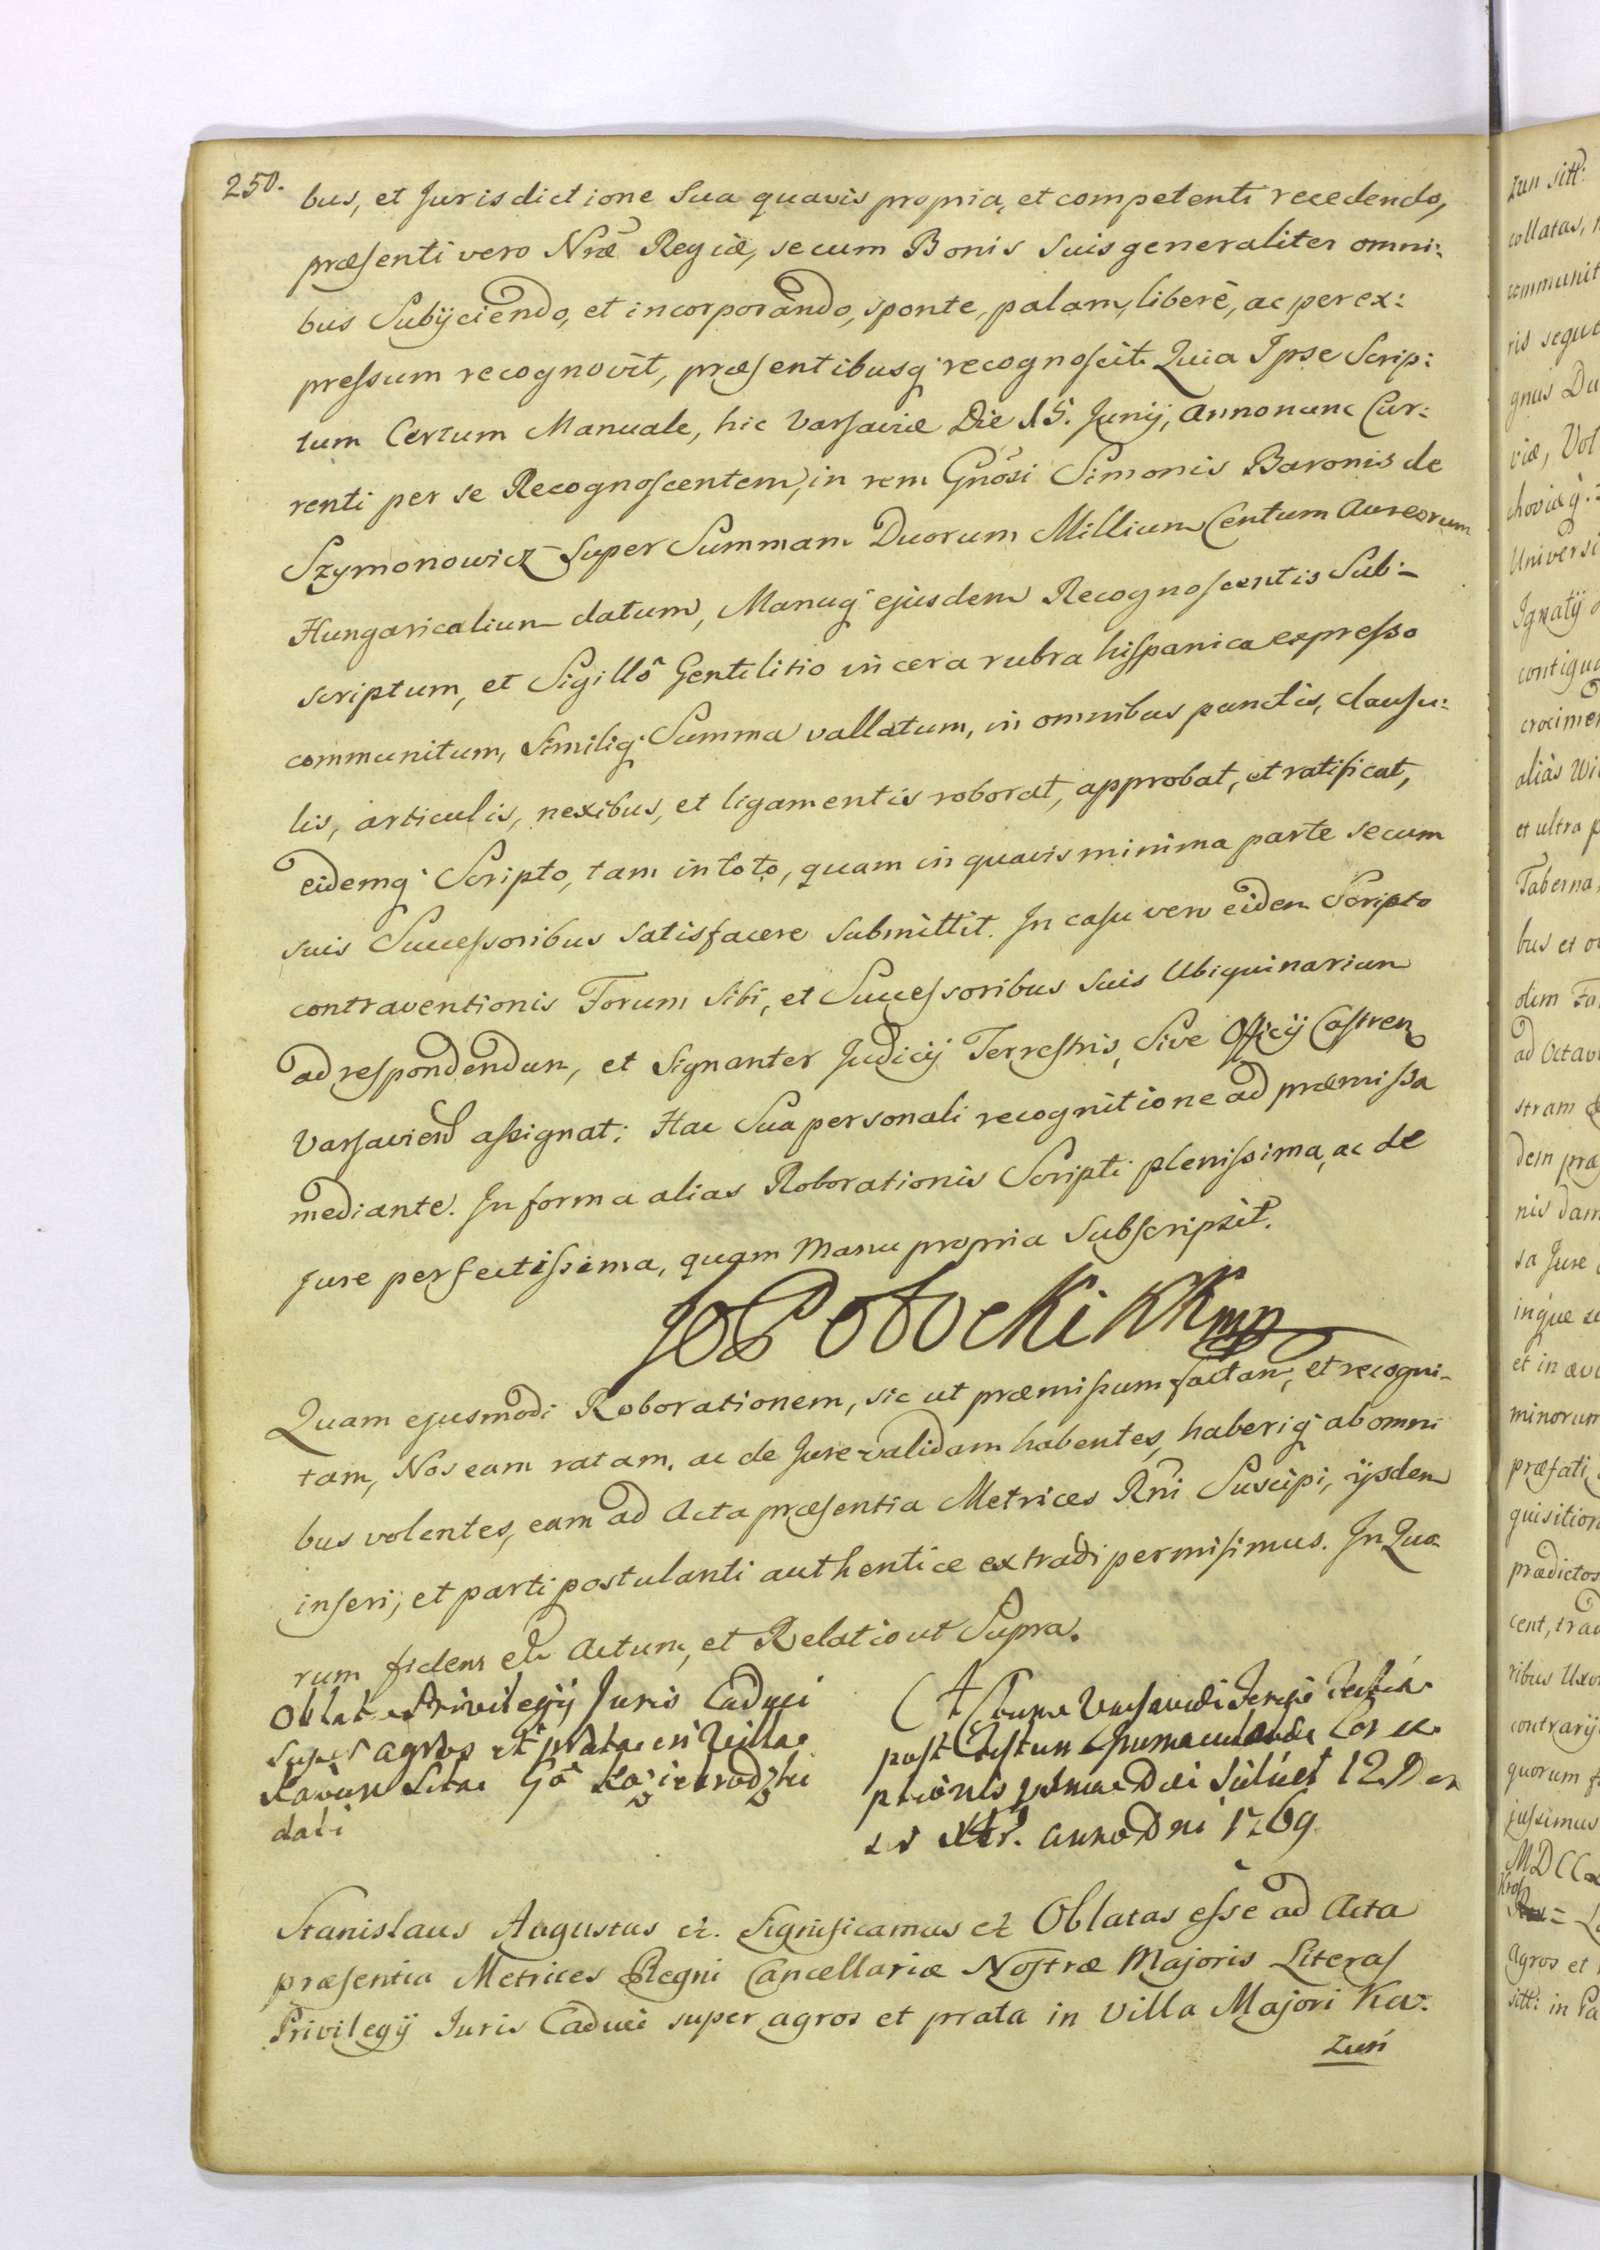 250.
bus, et Jurisdictione Sua quavis propria, et competenti recedendo,
præsenti vero Nræ Regiæ, secum Bonis Suis generaliter omni:
bus Subijciendo, et incorporando, sponte, palam, liberè, ac per ex:
pressum recognovit, præsentibusq. recognoscit. Quia Ipse Scrip:
tum Certum Manuale, hic Varsaviæ Die 15. Junij, Anno nunc Cur:
renti per se Recognoscentem, in rem Gnosi Simonis Baronis de
Szymonowicz Super Summam Duorum Millium Centum Aureorum
Hungaricalium datum, Manuq. ejusdem Recognoscentis Sub:
scriptum, et Sigillô Gentilitio in cera rubra hispanica expresso
communitum, Similiq. Summa vallatum, in omnibus punctis, clausu:
lis, articulis, nexibus, et ligamentis roborat, approbat, et ratificat,
eidemq. Scripto, tam in toto, quam in quavis minima parte secum
suis Successoribus satisfacere Submittit. In casu vero eidem Scripto
contraventionis Forum Sibi, et Successoribus Suis Ubiquinarium
ad respondendum, et Signanter Judicij Terrestris, Sive Officij Castren
Varsavien assignat: Hac Sua personali recognitione ad præmissa
mediante. In forma alias Roborationis Scripti plenissima, ac de
jure perfectissima, quam Manu propria Subscripsit.
Potocki KKmp
Quam ejusmodi Roborationem, sic ut præmissum factam, et recogni-
tam, Nos eam ratam, ac de Jure validam habentes, haberiq. ab omni
bus volentes, eam ad Acta præsentia Metrices Rni Suscipi, ijsdem
inseri, et parti postulanti authentice extradi permisimus. In Quo
rum fidem etc Actum, et Relatio ut Supra.
Oblata Privilegij Juris Caduci
super agros et prata in Villa
Kawen Sitae Gô Kazierodzki
dati
Actum Varsaviæ Feria
post Festum Immaculatæ Con ce
ptionis primae Die Siliiet 12 De
Xbr. anno Dni 1769
Stanislaus Augustus etz. Significamus etz Oblatas esse ad Acta
præsentia Metrices Regni Cancellariæ Nostræ Majoris Literas
Privilegij Juris Caduci super agros et prata in Villa Majori Ka:
zuń
zun sitt:
collatas,
communit
ris seque
gnus Du
viæ, Vol
choviæq.
Universi
Ignatij
contigua
crocimen
aliàs Wi
et ultra p
Taberna
bus et
olim Fa
ad Octav
stram
dem præ
nis dam
sa Jure
inque se
et in ævu
minorum
præfati
quisition
prædictos
cent, trad
ribus Uxor
contrarij
quorum f
jussimus
MDCC
agros et
sitt: in Pa